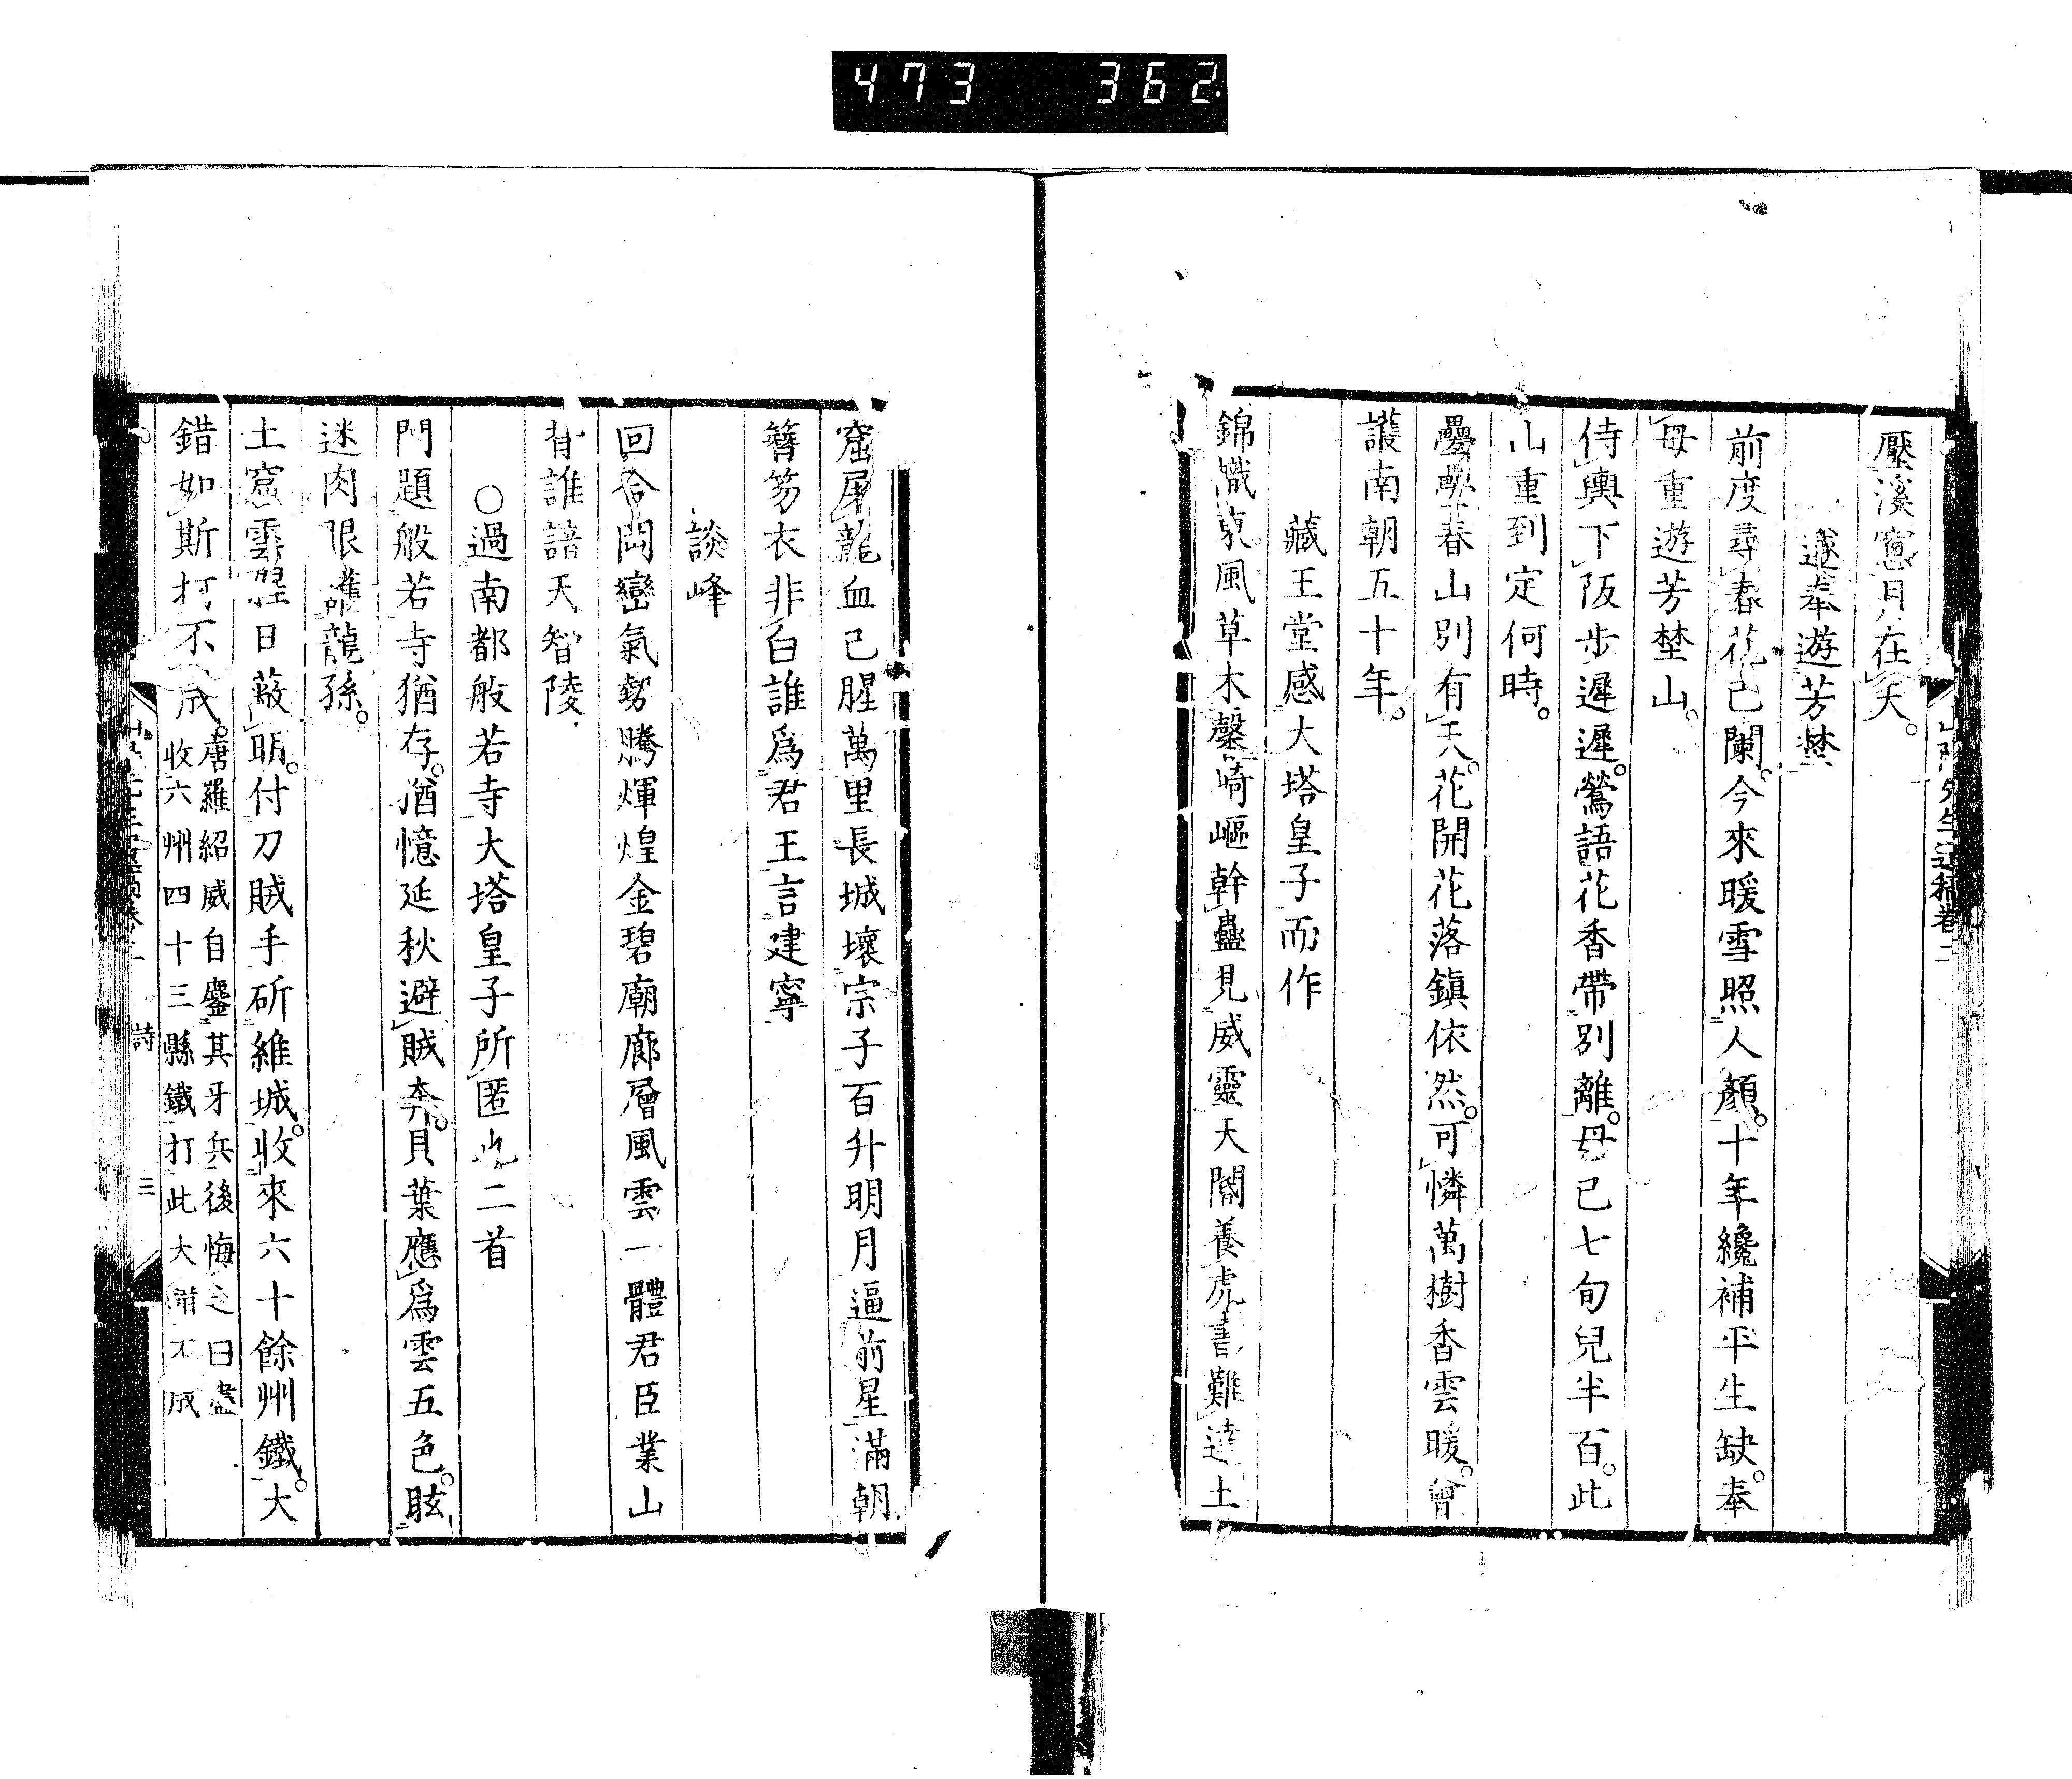 473 362
壓溪窻月在天。
遂奉遊芳埜
前度尋春花已闌。今來暖雪照人顏。十年纔補平生缺。奉
母重遊芳埜山。
侍輿下阪步遲遲。鶯語花香帶別離。母已七旬兒半百。此
山重到定何時。
疊疊春山別有天。花開花落鎮依然。可憐萬樹香雲暖。曾
護南朝五十年。
藏王堂感大塔皇子而作
錦幟哀風草木馨崎嶇幹蠱見威靈天閽養虎書難達土
窟屠龍血已腥萬里長城壞宗子百升明月逼前星滿朝
簪笏衣非白誰爲君王言建寧
談峰
回合岡巒氣勢騰煇煌金碧廟廊層風雲一體君臣業山
背誰諳天智陵
○過南都般若寺大塔皇子所匿也二首
門題般若寺猶存。猶憶延秋避賊奔。貝葉應爲雲五色。眩
迷肉眼護龍孫。
土窟雲腥日蔽明。付刀賊手斫維城。收來六十餘州鐵。大
錯如斯打不成。
唐羅紹威自鏖其牙兵後悔之曰盡
收六州四十三縣鐵打此大錯不成
詩
三